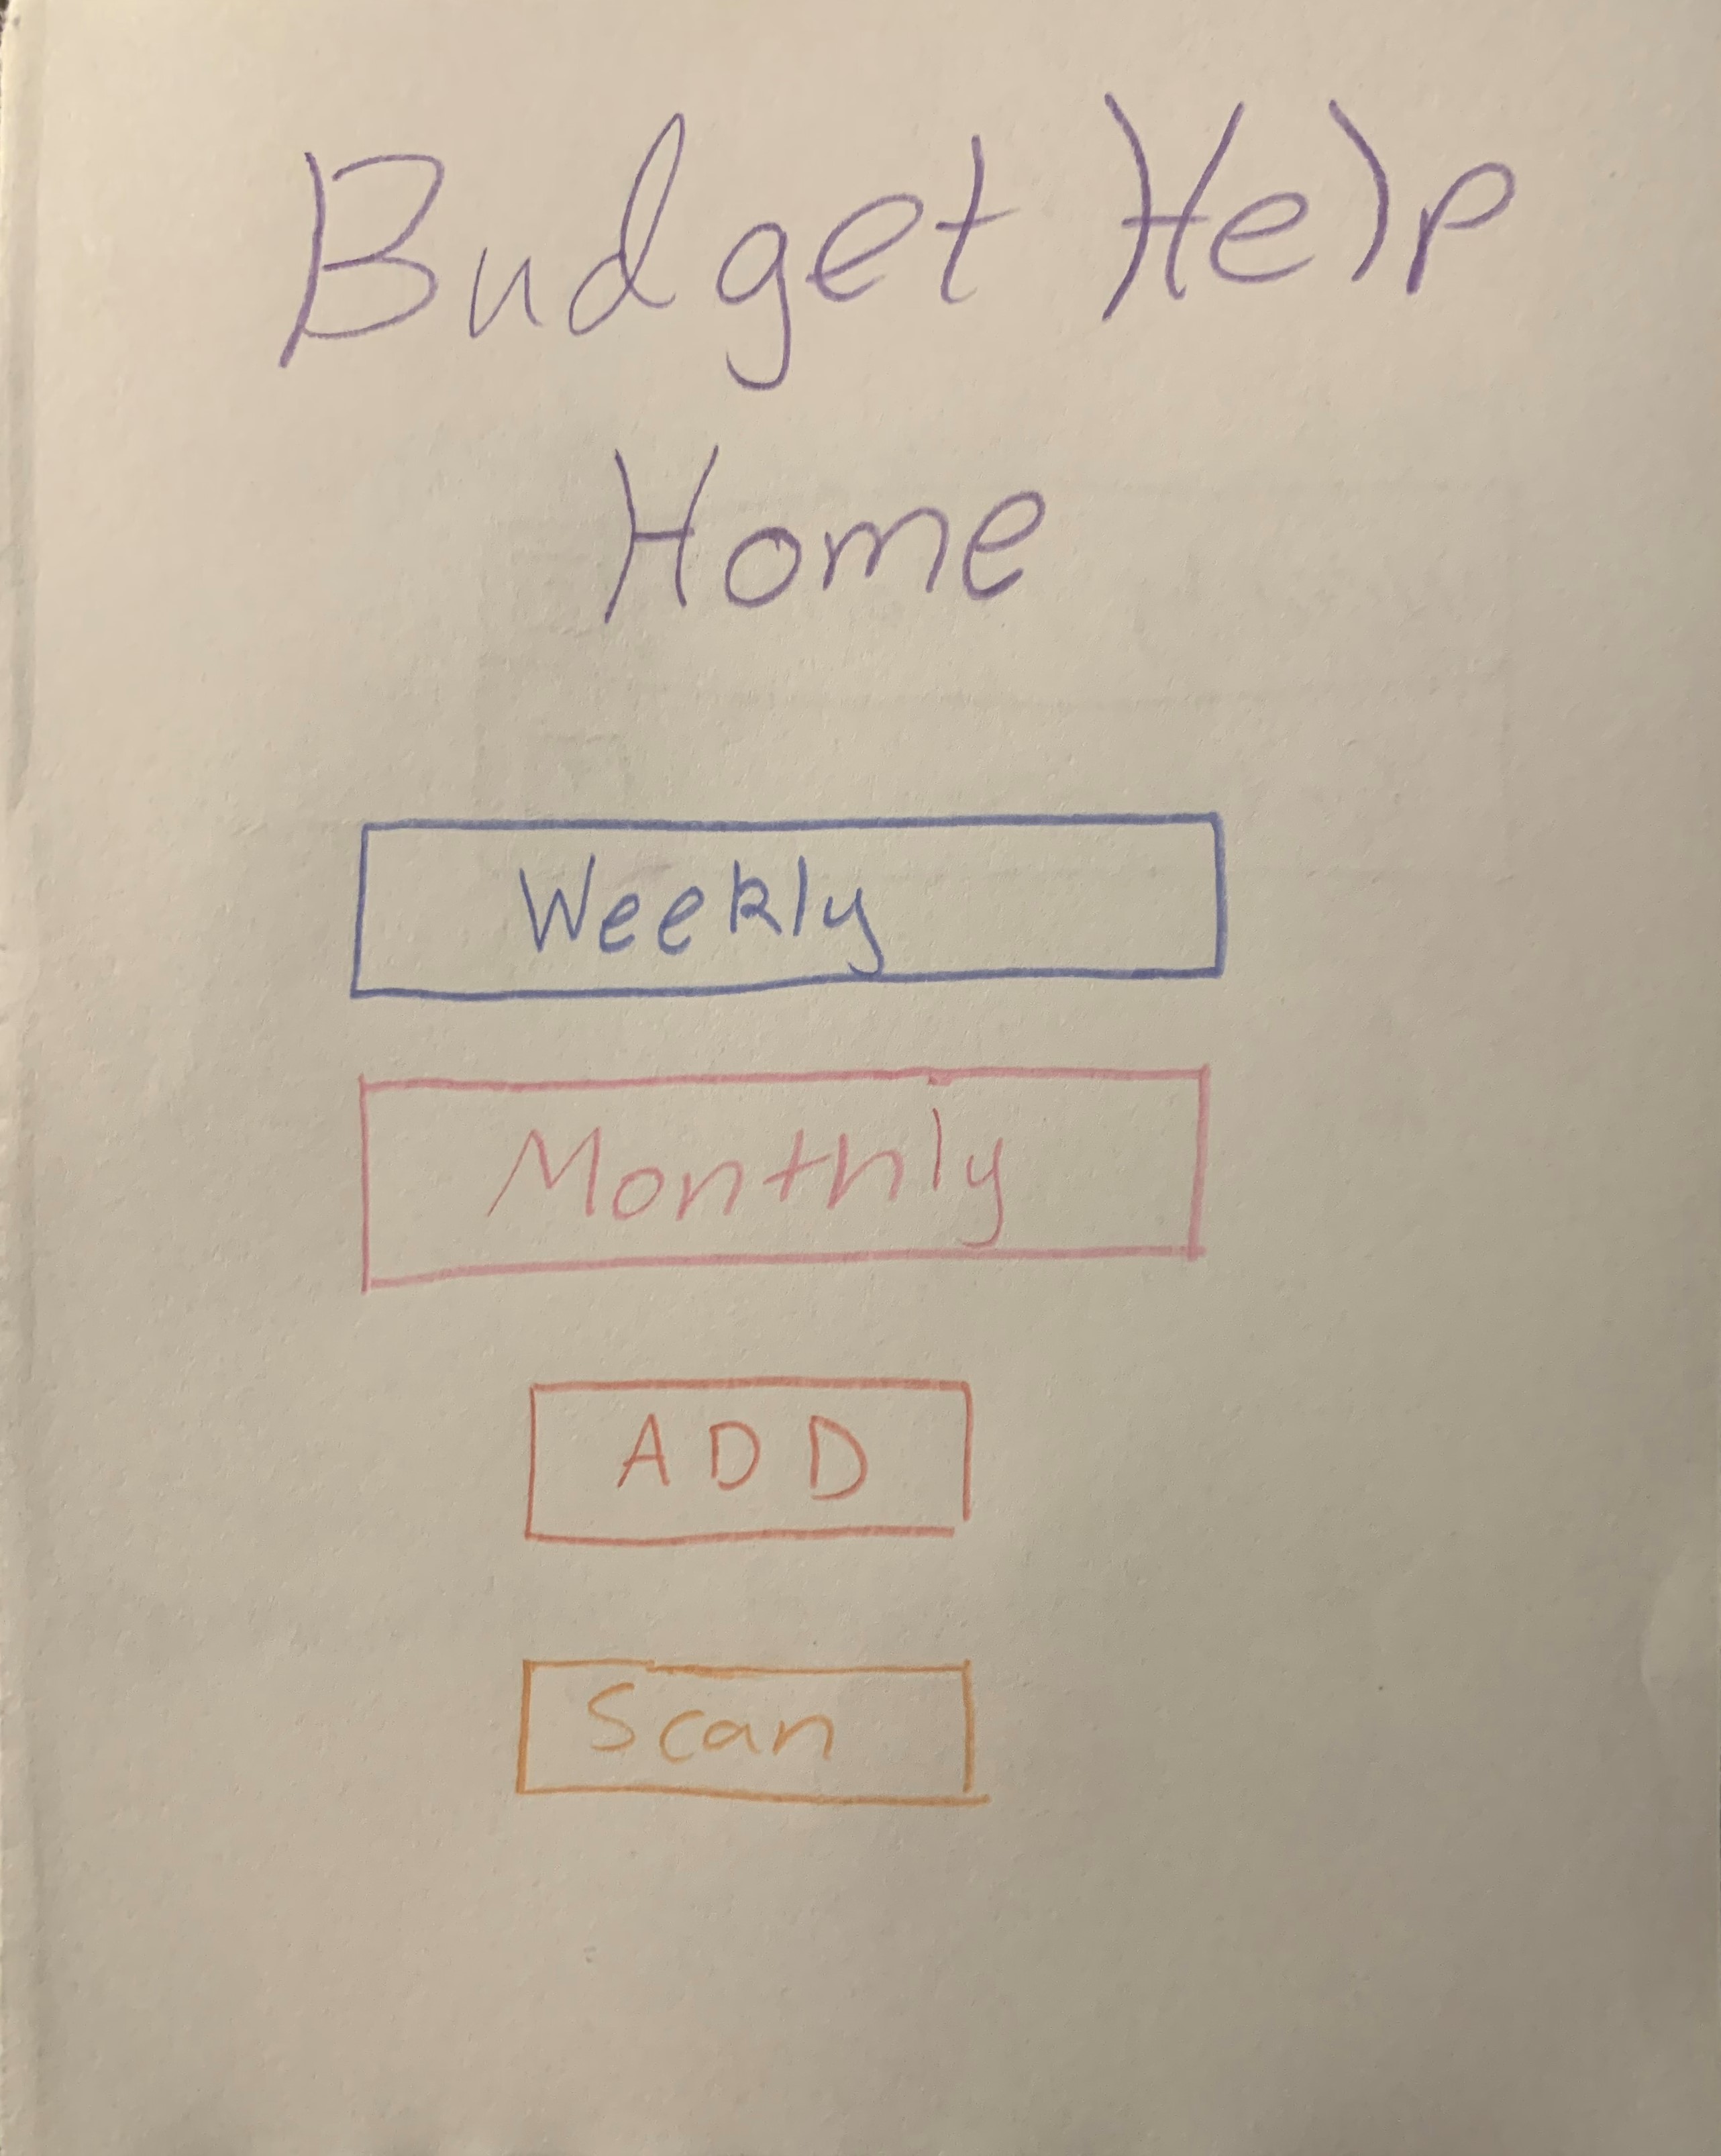 Budget Help
Home
Weekly
Monthly
ADD
Scan